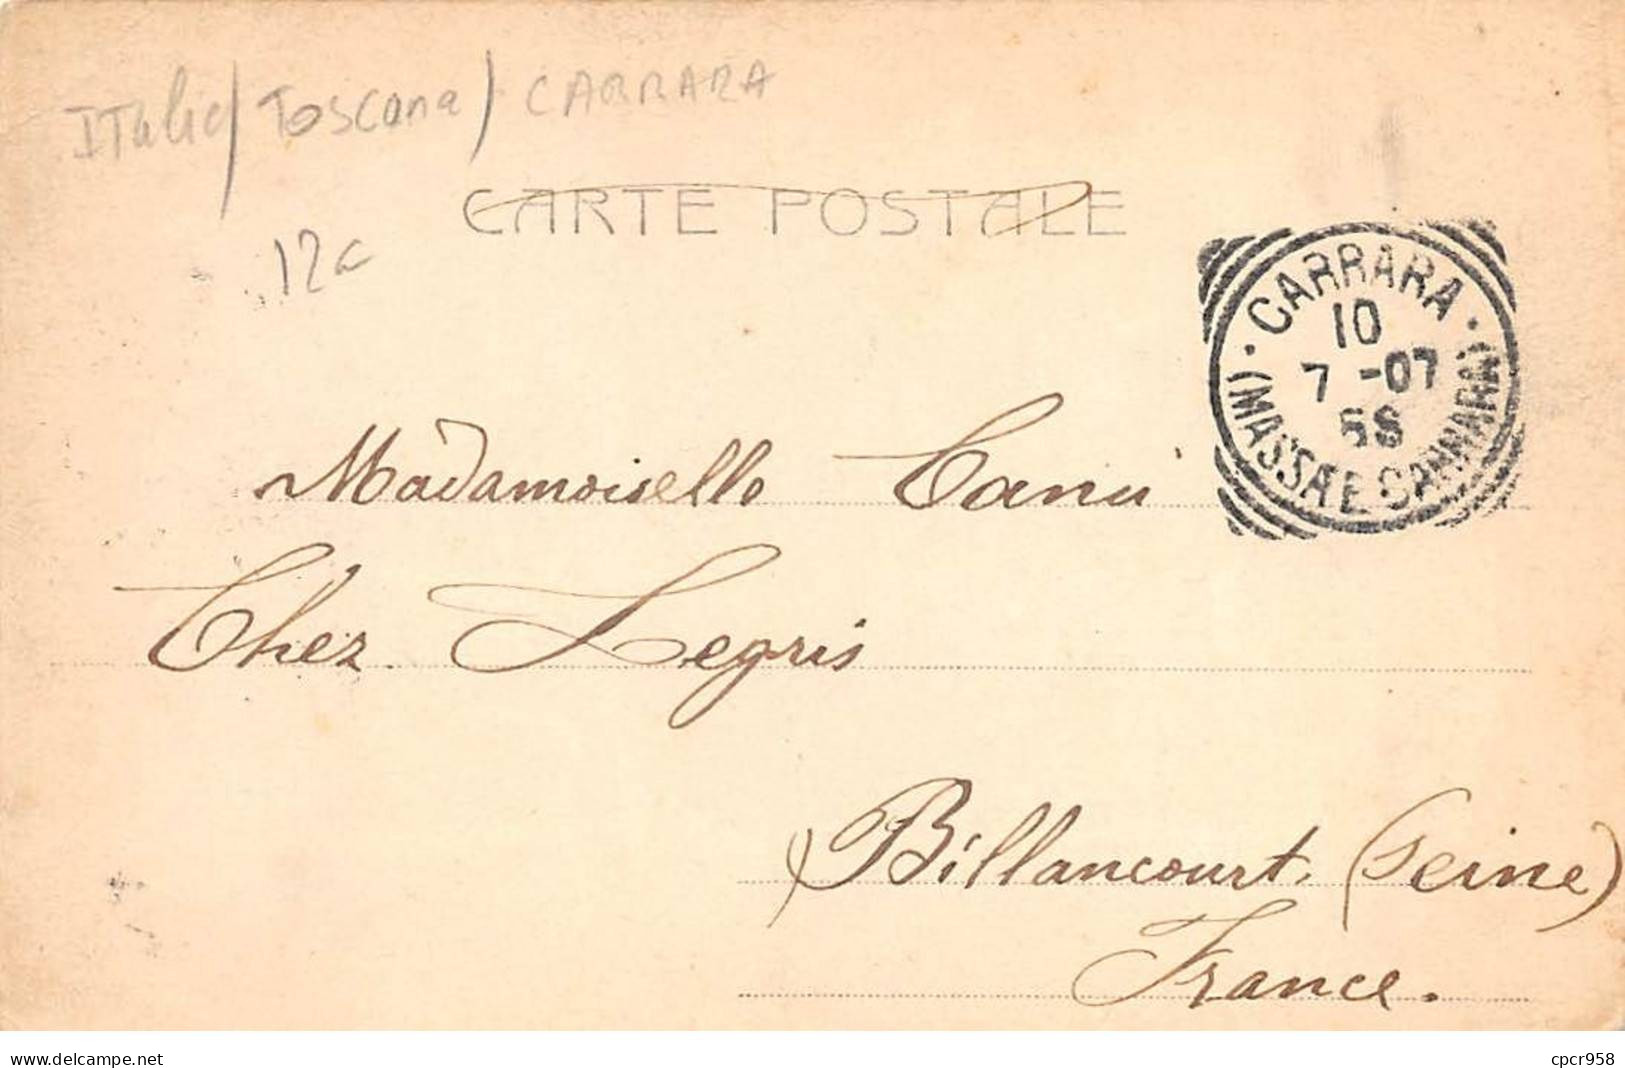 ITalie / Toscana / CARRARA
CARTE POSTALE
12€
CARRARA
10
7 -07
5S
(MASSA E CARRARA)
Mademoiselle Canu
Chez Legris
Billancourt. (Seine)
France.
www.delcampe.net
cpcr958